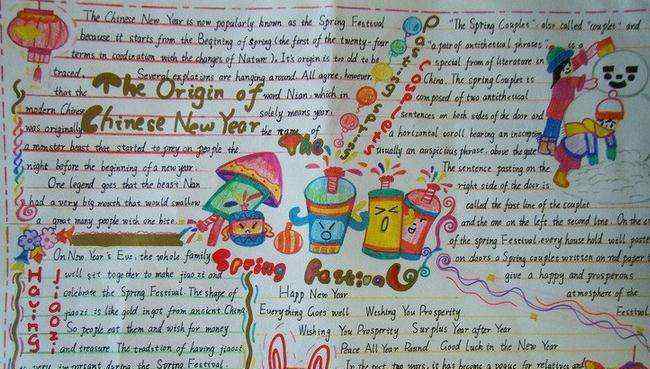 The Chinese New Year is now popularly known as the Spring Festival
because it starts from the Beginning of Spring (the first of the twenty-four
terms in coodination with the changes of Nature). It's origin is too old to be
traced. Several explations are hanging around. All agree, however,
that the word Nian, which in
modern Chinese solely means year
was originally the name of
a monster beast that started to prey on people the
night before the beginning of a new year.
One legend goes that the beast Nian
had a very big mouth that would swallow
a great many people with one bite.
The Origin of
Chinese New Year
The
Spring Festival
Pasting Spring Couplets
"The Spring Couplet", also called "couplet" and
"a pair of antithesical phrases", is a
special from of literature in
China. The spring Couplet is
composed of two antithesical
sentences on both sides of the door and
a horizontal scroll bearing an
usually an auspicious phrase, above the gate.
The sentence pasting on the
right side of the door is
called the first line of the couplet
and the one on the left the second line. On the
of the spring Festival, every household will paste
on doors a Spring couplet written on red paper
give a happy and prosperous
atmosphere of the
Festival
Having Jiaozi
On New Year's Eve, the whole family
will get together to make jiaozi and
celebrate the Spring Festival. The shape of
jiaozi is like gold ingot from ancient China
So people eat them and wish for money
and treasure. The tradition of having jiaozi
is very important during the Spring Festival.
Happy New Year
Everything Goes well Wishing You Prosperity
Wishing You Prosperity Surplus Year after Year
Peace All Year Round Good Luck in the New Year
In the past two years, it has become a vogue for relatives and